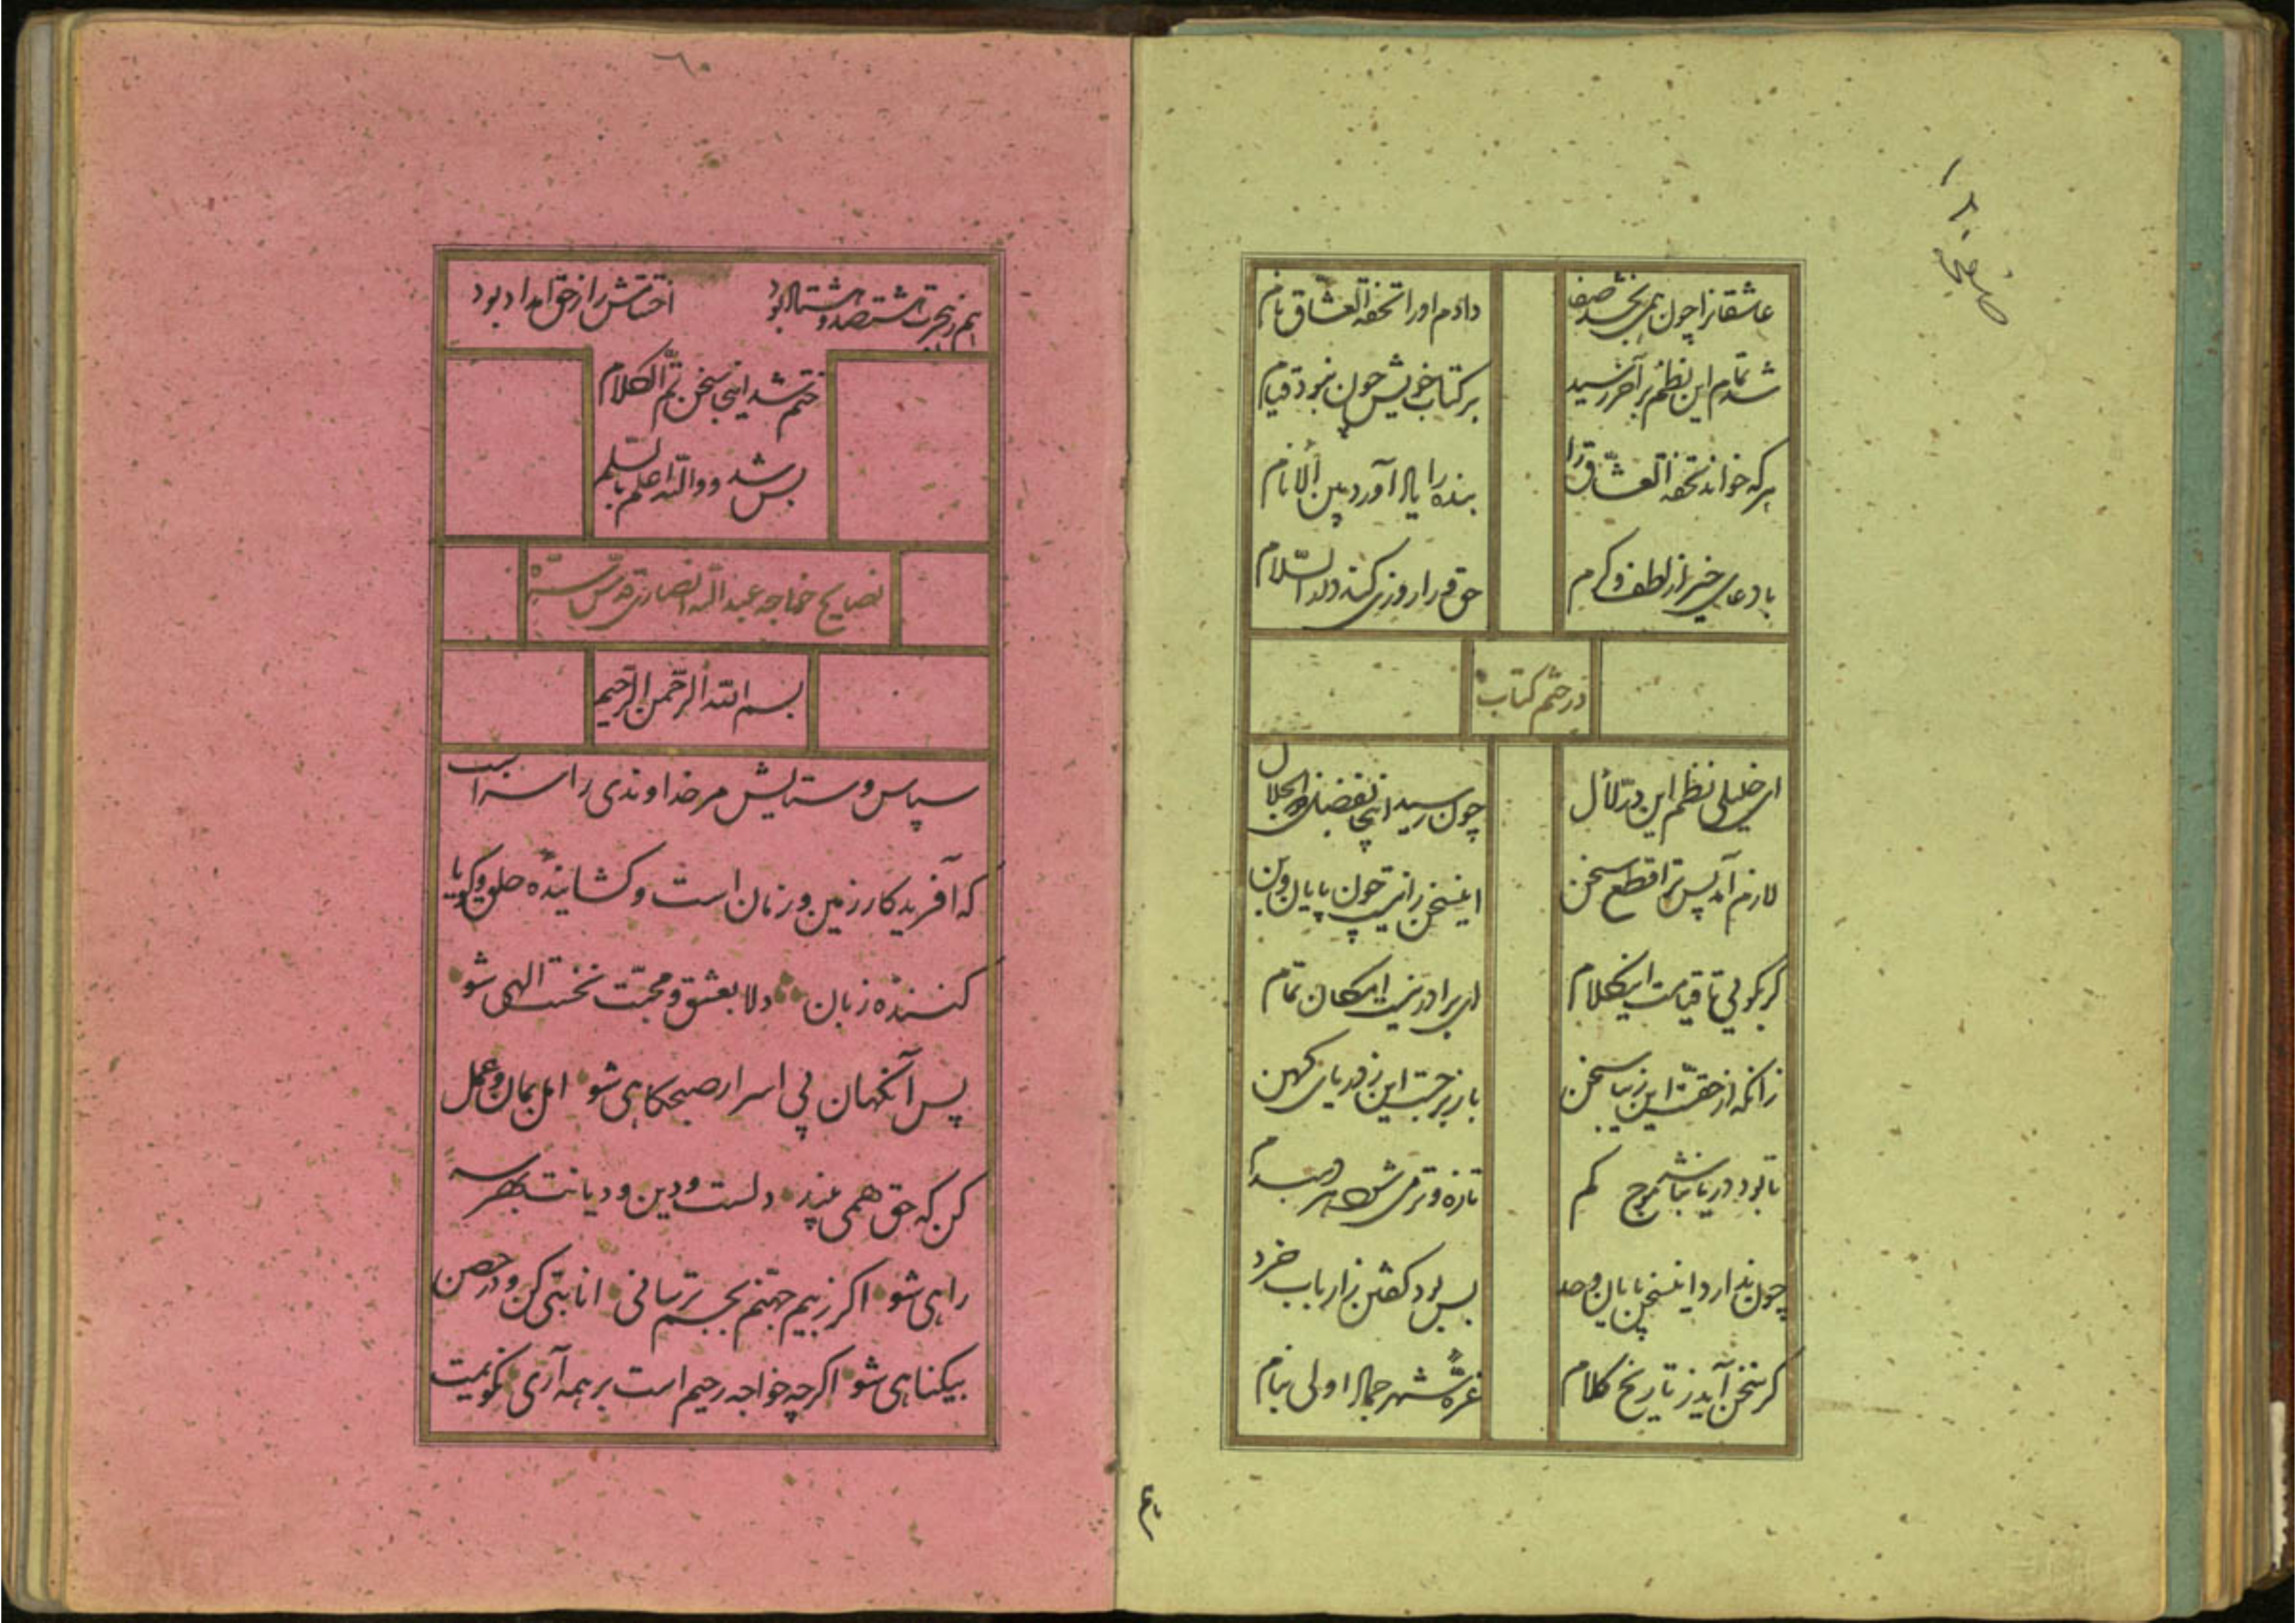 ۱۲۰ صفحه
عاشقانرا چون همی بخشد صفا دادم او را تحفة العشّاق نام
شد تمام این نظم بر آخر رسید بر کتاب خویش چون نبود قیام
هر که خواند تحفة العشّاق را بنده را یاد آورد بین الانام
با دعای خیر از لطف و کرم حق ورا روزی کند دار السّلام
در ختم کتاب
ای خلیلی نظم این درّ لأل چون رسید اینجا بفضل ذو الجلال
لازم آمد پس ترا قطع سخن اینسخن را نیست چون پایان و بن
گر بگویی تا قیامت اینکلام ای برادر نیست امکان تمام
زانکه از حقست این زیبا سخن باز برجست این ز دریای کهن
تا بود دریا نباشد موج کم تازه و تر می شود هر دمبدم
چون ندارد اینسخن پایان و حد بس بود گفتن ز ارباب خرد
گر سخن آید ز تاریخ کلام غرّه شهر جماد اولی بنام
هم
٦٠
هم ز هجرت هشتصد و هشتاد بود اختتامش را ز حق امداد بود
ختم شد اینجا سخن تمّ الکلام
بس شد و والله اعلم بالسلم
نصایح خواجه عبد الله انصاری قدّس سرّه
بسم الله الرّحمن الرّحیم
سپاس و ستایش مر خداوندی را سزاست
که آفریدگار زمین و زمان است و گشاینده حلق و گویا
کننده زبان دلا بعشق و محبّت نخست الهی شو
پس آنگهان پی اسرار صبحگاهی شو اهل ایمان و عمل
کن که حق همی بیند دلست و دین و دیانت بهر سه
راهی شو اگر ز بیم جهنّم بجسم ترسانی انابتی کن و در حصن
بیگناهی شو اگر چه خواجه رحیم است بر همه آری نگویمت